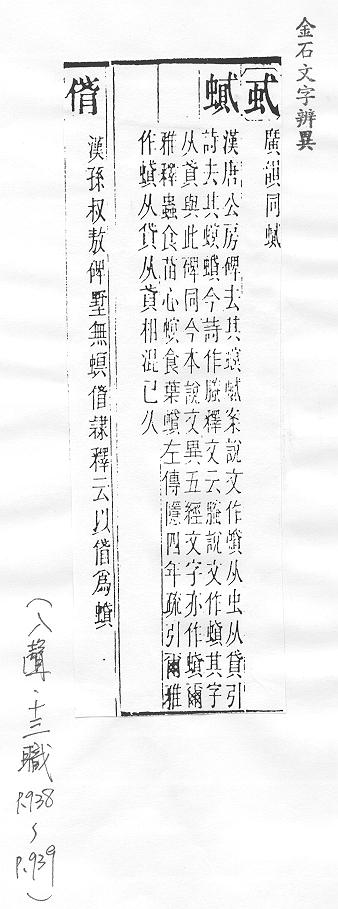 金石文字辨異
蟘
廣韻同蟘
漢唐公房碑去其螟蟘案說文作蟘从虫从貸引
詩去其螟蟘今詩作螣釋文云螣說文作蟘其字
从貣與此碑同今本說文異五經文字亦作蟘爾
雅釋蟲食苗心螟食葉蟘左傳隱四年疏引爾雅
作蟘从貸从貣相混已久
偝
漢孫叔敖碑野無螟偝隸釋云以偝為蟘
(入聲.十三職
P.938
~
P.939
)